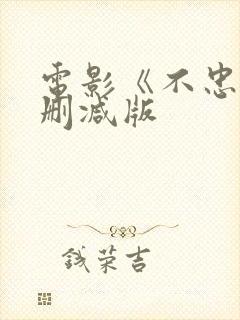 電影《不忠
删减版
钱荣吉